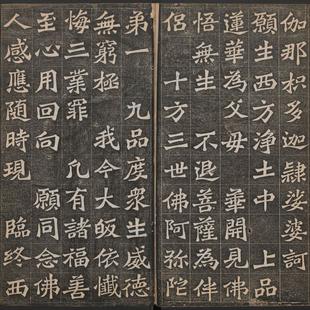 伽那枳多迦隸娑婆訶
願生西方淨土中 上品
蓮華為父母 華開見佛
悟無生 不退菩薩為伴
侶 十方三世佛阿弥陀
第一 九品度衆生威德
無窮極 我今大皈依懺
悔三業罪 凡有諸福善
至心用回向 願同念佛
人感應隨時現 臨終西